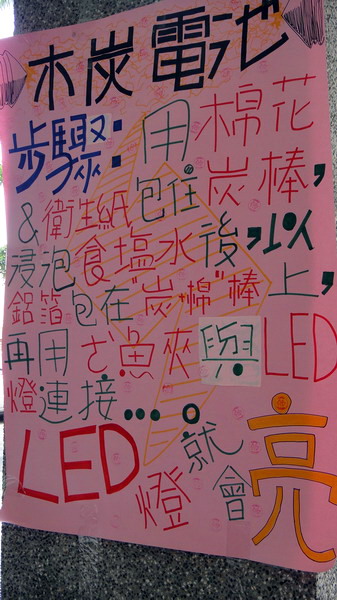 木炭電池
步驟：用棉花
&衛生紙包住炭棒，
浸泡食塩水後，以
鋁箔包在"炭+棉"棒上，
再用ㄜˋ魚夾與LED
燈連接...。
LED燈就會亮